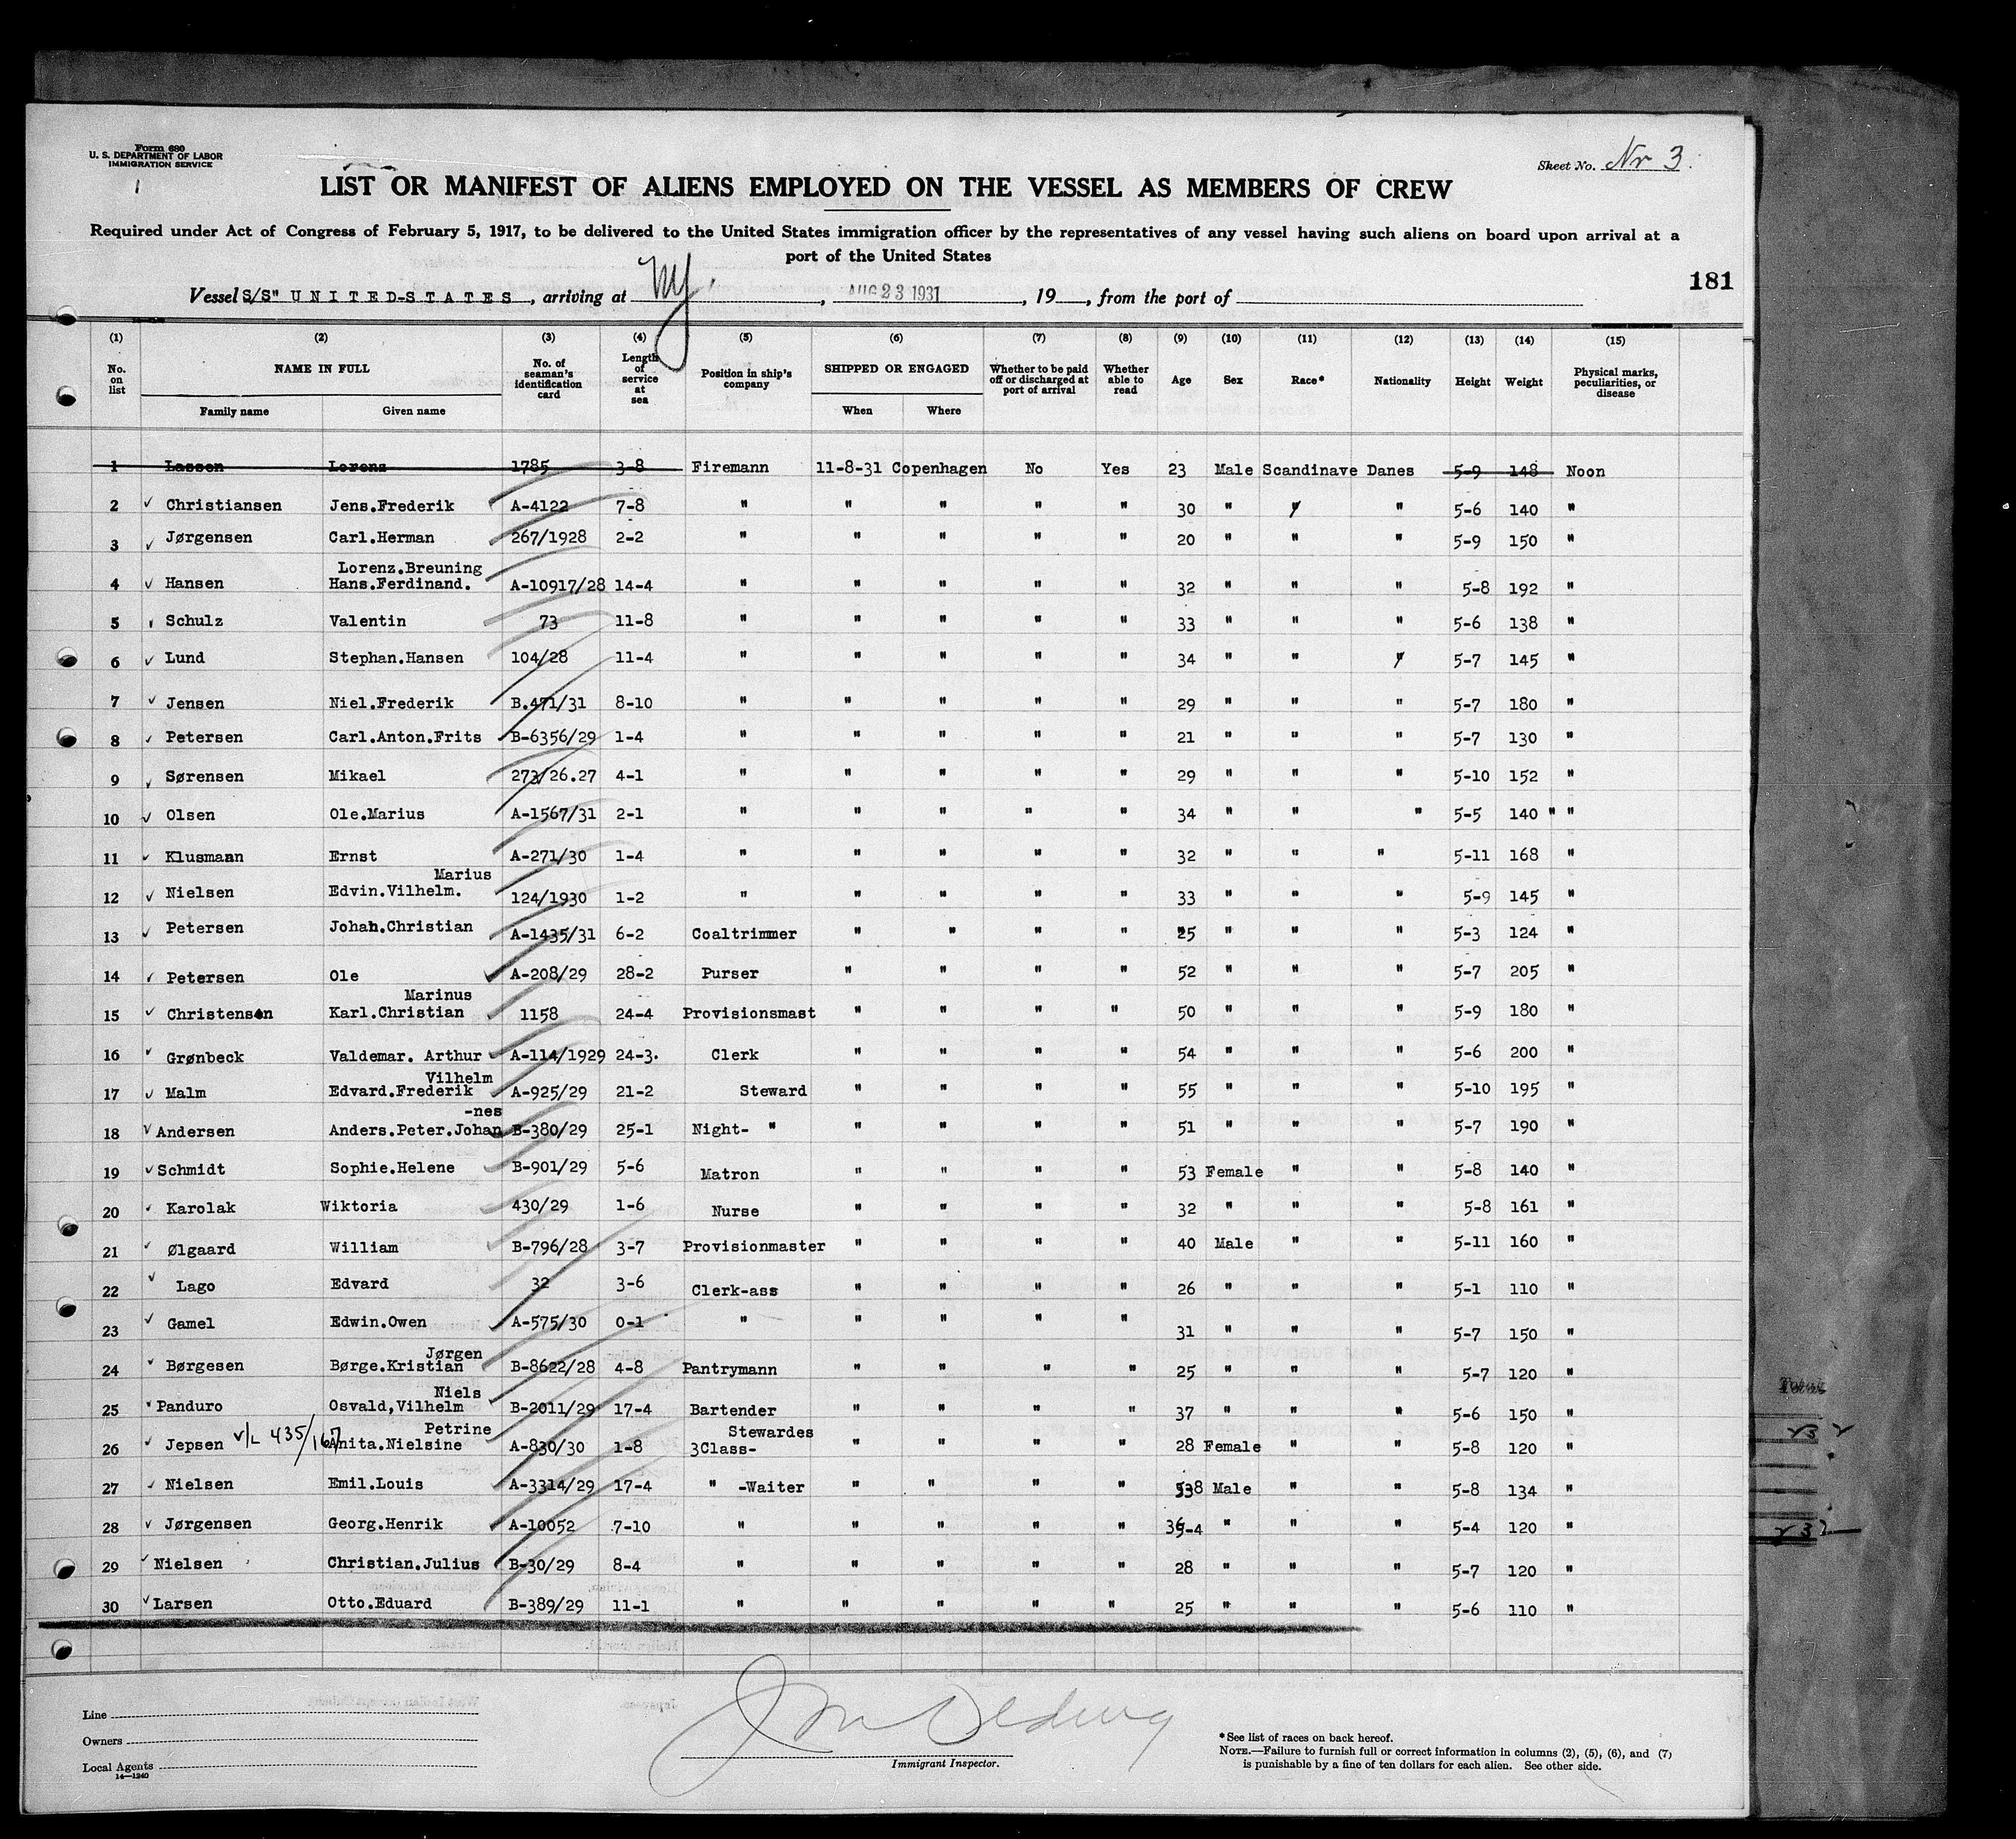 Form 680
U. S. DEPARTMENT OF LABOR
IMMIGRATION SERVICE
Sheet No. Nr 3.
LIST OR MANIFEST OF ALIENS EMPLOYED ON THE VESSEL AS MEMBERS OF CREW
Required under Act of Congress of February 5, 1917, to be delivered to the United States immigration officer by the representatives of any vessel having such aliens on board upon arrival at a
port of the United States
181
Vessel S/S" UNITED-STATES, arriving at NY., AUG 23 1931, 19, from the port of
(1) (2) (3) (4) (5) (6) (7) (8) (9) (10) (11) (12) (13) (14) (15)
No. on list NAME IN FULL No. of seaman's identification card Length of service at sea Position in ship's company SHIPPED OR ENGAGED Whether to be paid off or discharged at port of arrival Whether able to read Age Sex Race* Nationality Height Weight Physical marks, peculiarities, or disease
Family name Given name When Where
1 Lassen Lorenz 1785 3-8 Firemann 11-8-31 Copenhagen No Yes 23 Male Scandinave Danes 5-9 148 Noon
2 ✓ Christiansen Jens.Frederik A-4122 7-8 " " " " " 30 " " " 5-6 140 "
3 ✓ Jørgensen Carl.Herman 267/1928 2-2 " " " " " 20 " " " 5-9 150 "
Lorenz.Breuning
4 ✓ Hansen Hans.Ferdinand. A-10917/28 14-4 " " " " " 32 " " " 5-8 192 "
5 ✓ Schulz Valentin 73 11-8 " " " " " 33 " " " 5-6 138 "
6 ✓ Lund Stephan.Hansen 104/28 11-4 " " " " " 34 " " " 5-7 145 "
7 ✓ Jensen Niel.Frederik B.471/31 8-10 " " " " " 29 " " " 5-7 180 "
8 ✓ Petersen Carl.Anton.Frits B-6356/29 1-4 " " " " " 21 " " " 5-7 130 "
9 ✓ Sørensen Mikael 273/26.27 4-1 " " " " " 29 " " " 5-10 152 "
10 ✓ Olsen Ole.Marius A-1567/31 2-1 " " " " " 34 " " " 5-5 140 " "
11 ✓ Klusmann Ernst A-271/30 1-4 " " " " " 32 " " " 5-11 168 "
Marius
12 ✓ Nielsen Edvin.Vilhelm. 124/1930 1-2 " " " " " 33 " " " 5-9 145 "
13 ✓ Petersen Johan.Christian A-1435/31 6-2 Coaltrimmer " " " " 25 " " " 5-3 124 "
14 ✓ Petersen Ole A-208/29 28-2 Purser " " " " 52 " " " 5-7 205 "
Marinus
15 ✓ Christensen Karl.Christian 1158 24-4 Provisionsmast " " " " 50 " " " 5-9 180 "
16 ✓ Grønbeck Valdemar. Arthur A-114/1929 24-3. Clerk " " " " 54 " " " 5-6 200 "
Vilhelm
17 ✓ Malm Edvard.Frederik A-925/29 21-2 Steward " " " " 55 " " " 5-10 195 "
-nes
18 ✓ Andersen Anders.Peter.Johan B-380/29 25-1 Night- " " " " " 51 " " " 5-7 190 "
19 ✓ Schmidt Sophie.Helene B-901/29 5-6 Matron " " " " 53 Female " " 5-8 140 "
20 ✓ Karolak Wiktoria 430/29 1-6 Nurse " " " " 32 " " " 5-8 161 "
21 ✓ Ølgaard William B-796/28 3-7 Provisionmaster " " " " 40 Male " " 5-11 160 "
22 ✓ Lago Edvard 32 3-6 Clerk-ass " " " " 26 " " " 5-1 110 "
23 ✓ Gamel Edwin.Owen A-575/30 0-1 " " " " " 31 " " " 5-7 150 "
Jørgen
24 ✓ Børgesen Børge.Kristian B-8622/28 4-8 Pantrymann " " " " 25 " " " 5-7 120 "
Niels
25 ✓ Panduro Osvald,Vilhelm B-2011/29 17-4 Bartender " " " " 37 " " " 5-6 150 "
Petrine Stewardes
26 ✓ Jepsen V/L 435/167 Anita.Nielsine A-830/30 1-8 3Class- " " " " 28 Female " " 5-8 120 "
27 ✓ Nielsen Emil.Louis A-3314/29 17-4 " -Waiter " " " " Male " " 5-8 134 "
28 ✓ Jørgensen Georg.Henrik A-10052 7-10 " " " " " " " " 5-4 120 "
29 ✓ Nielsen Christian.Julius B-30/29 8-4 " " " " " 28 " " " 5-7 120 "
30 ✓ Larsen Otto.Eduard B-389/29 11-1 " " " " " 25 " " " 5-6 110 "
Line
Owners
Local Agents
14—1240
Immigrant Inspector.
*See list of races on back hereof.
NOTE.—Failure to furnish full or correct information in columns (2), (5), (6), and (7)
is punishable by a fine of ten dollars for each alien. See other side.